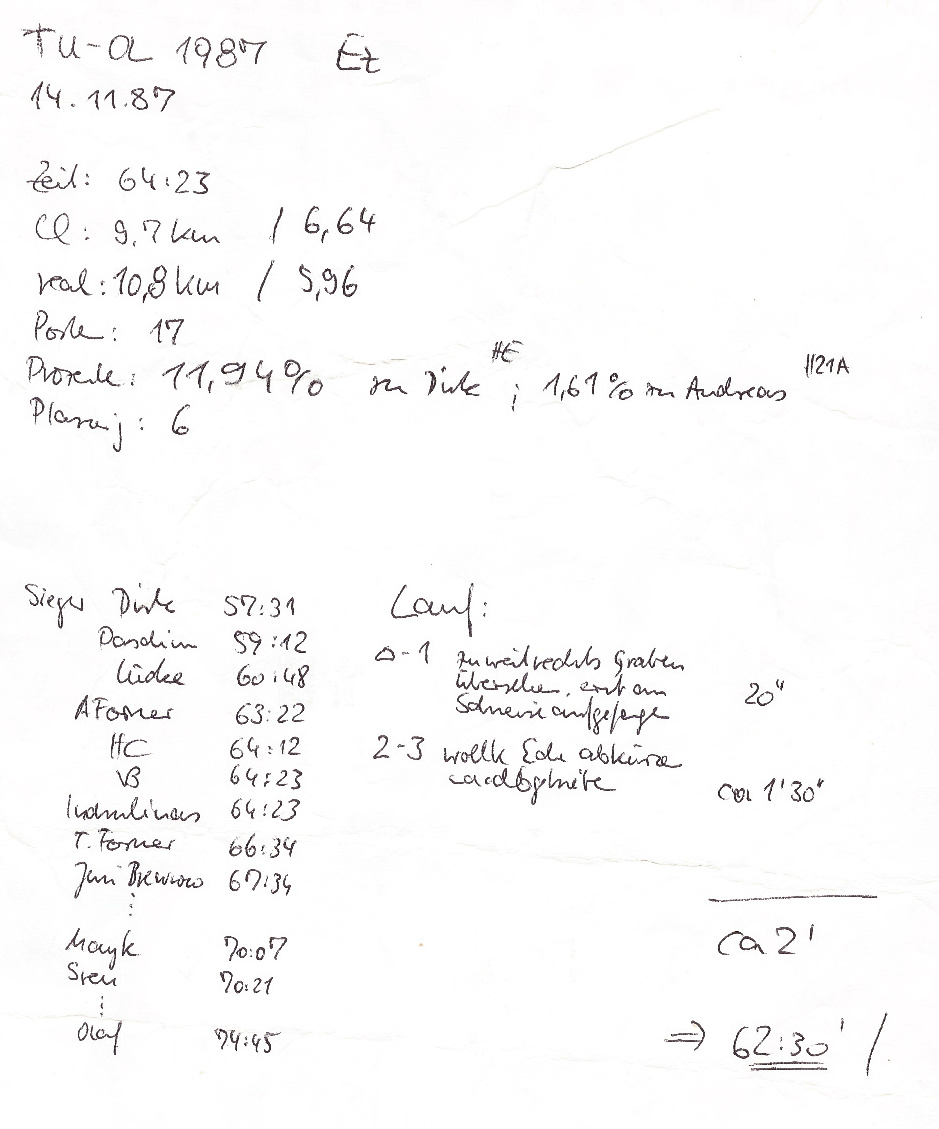 TU-OL 1987 Et
14.11.87
Zeit: 64:23
CL: 9,7 km / 6,64
real: 10,8 km / 5,96
Posten: 17
Prozente: 11,94% zu Dirk HE ; 1,61% zu Andreas H21A
Platzierg: 6
Sieger Dirk 57:31
59:12
Lücke 60:48
A Forner 63:22
HC 64:12
VB 64:23
64:23
T. Forner 66:34
67:34
⋮
Mayk 70:07
Sven 70:21
⋮
Olaf 74:45
Lauf:
△-1 zu weit rechts Graben
übersehen, erst an
Schneise aufgefangen 20"
2-3 wollte Ecke abkürzen
ca 1'30"
ca 2'
⇒ 62:30' /